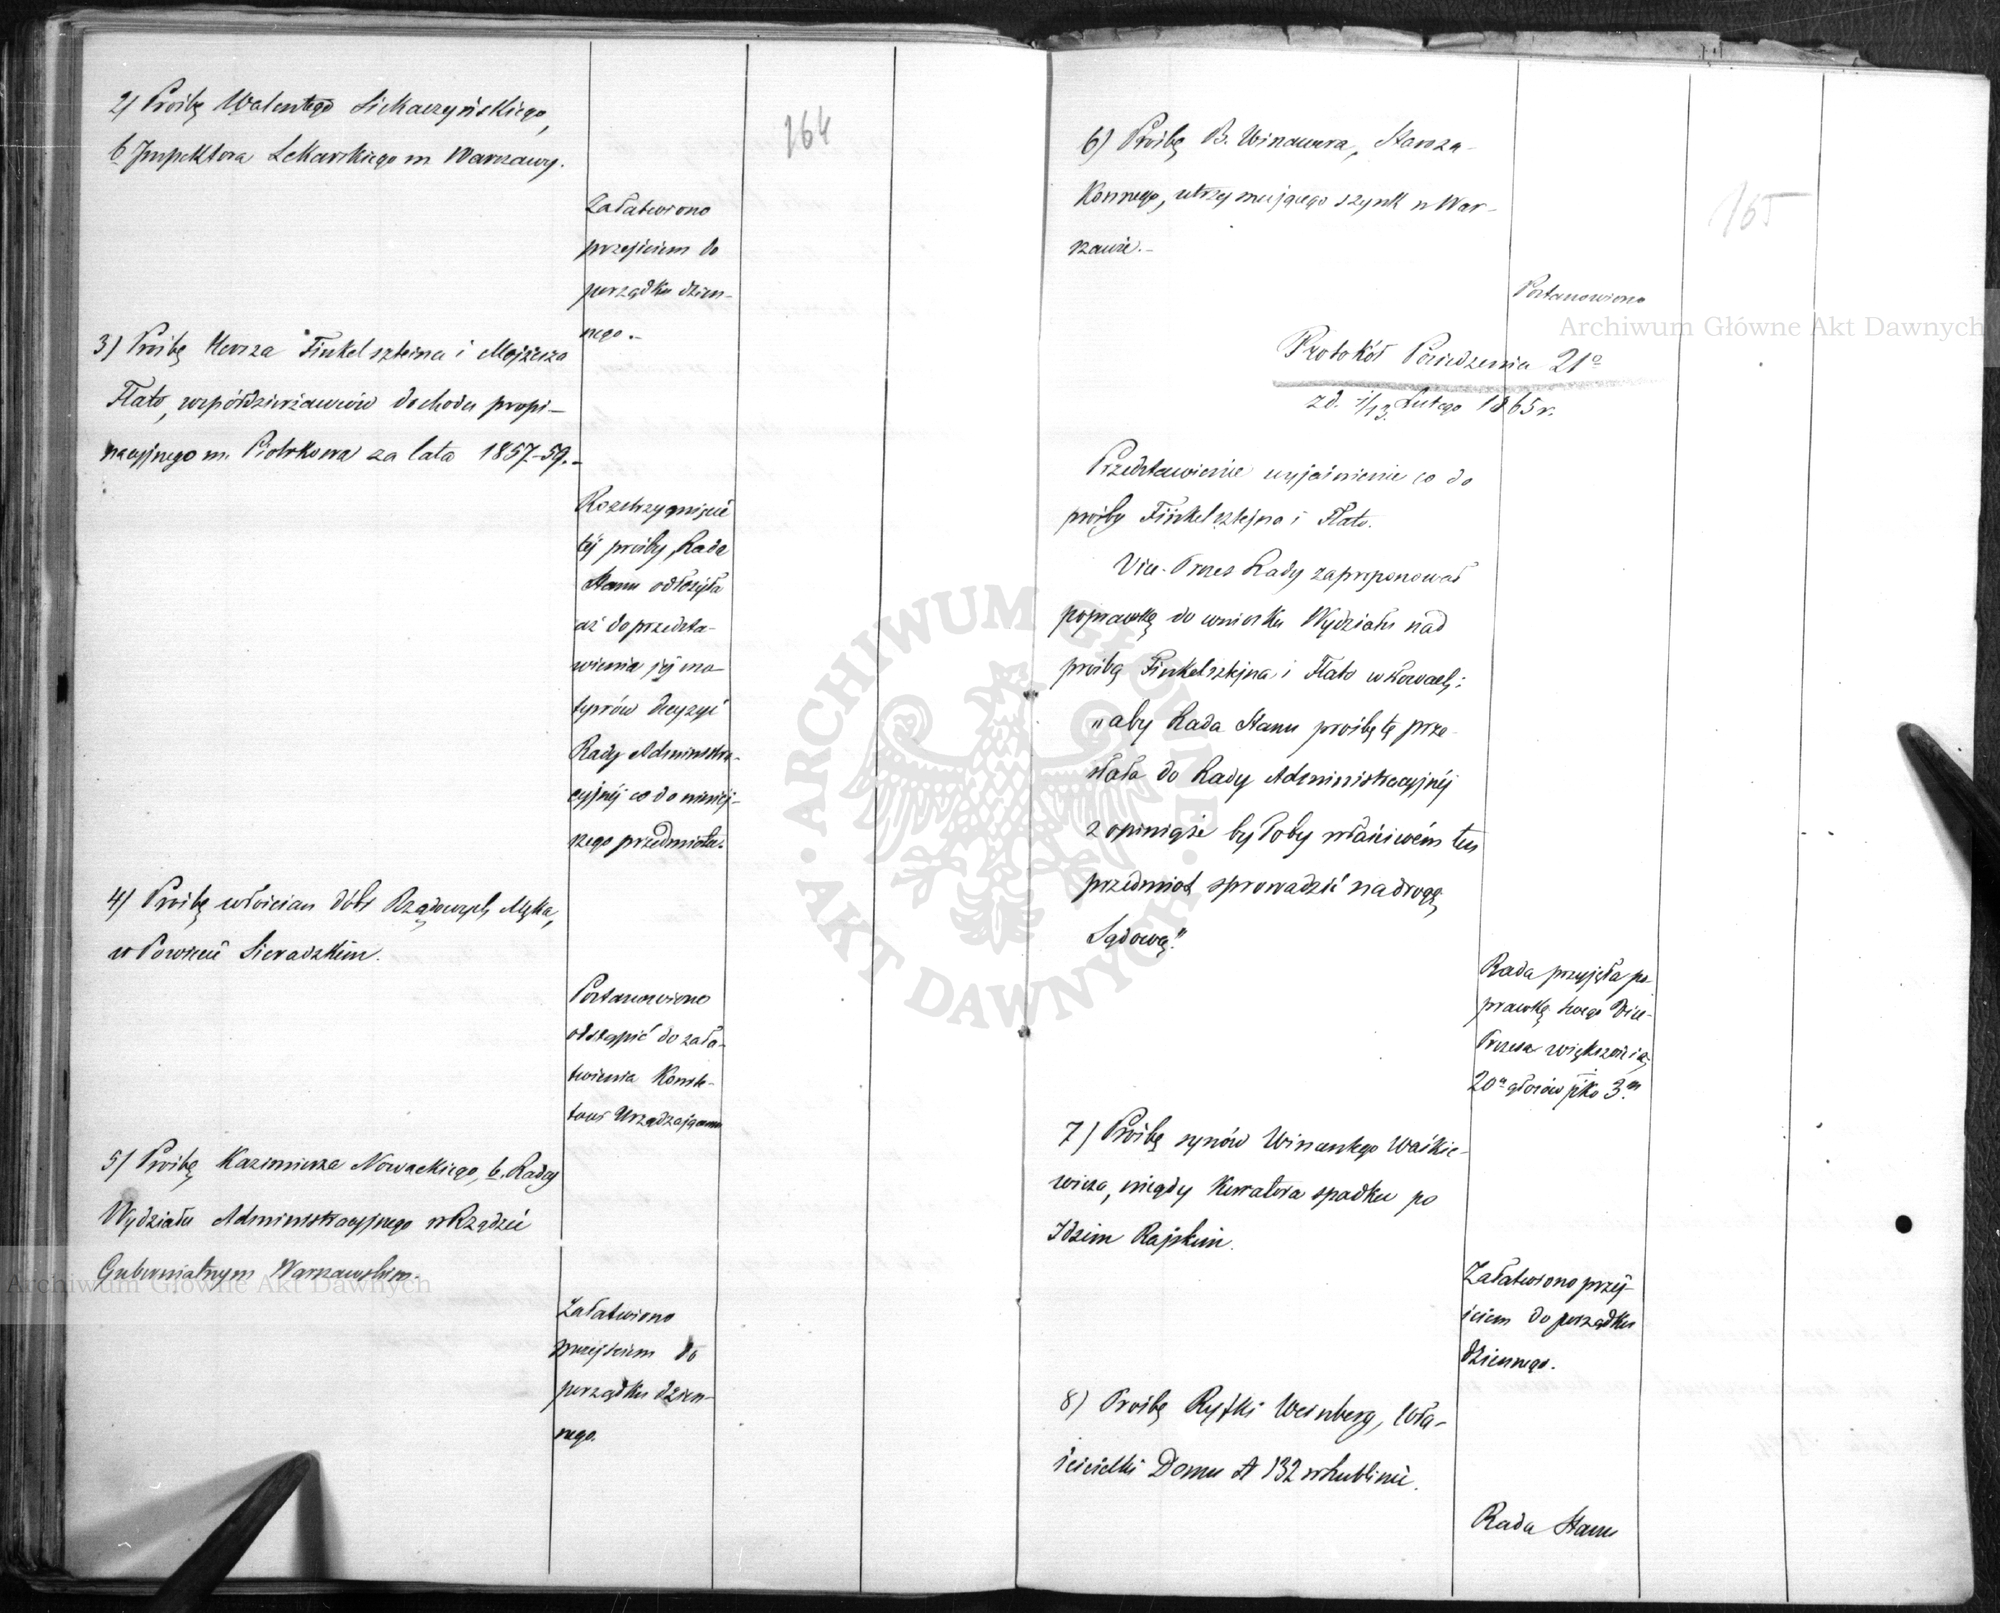 164
2) Prośbę Walentego Siekaczyńskiego,
b Inspektora Lekarskiego m Warszawy.
Załatwiono
przejściem do
porządku dzien-
nego.-
3) Prośbę Hersza Finkelszteina i Mojżesza
Flato, współdzierżawców dochodu propi-
nacyjnego m. Piotrkowa za lata 1857-59.-
Rozstrzygnięcie
téj prośby, Rada
Stanu odłożyła
aż do przedsta-
wienia jéj mo-
tywów decyzyi
Rady Administra-
cyjnéj co do niniej-
szego przedmiotu.
4) Prośbę włościan dóbr Rządowych Męka,
w Powiecie Sieradzkim.
Postanowiono
odstąpić do zała-
twienia Komite-
towi Urządzającemu
5) Prośbę Kazimierza Nowackiego, b. Radcy
Wydziału Administracyjnego w Rządzie
Gubernialnym Warszawskim.
Załatwiono
przejściem do
porządku dzien-
nego.
165
6) Prośbę B. Winawera, Staroza-
konnego, utrzymującego szynk w War-
szawie.-
Postanowiono
Protokół Posiedzenia 21º
z d. 1/13 Lutego 1865 r.
Przedstawienie wyjaśnienie co do
prośby Finkelsztejna i Flato.
Vice-Prezes Rady zaproponował
poprawkę do wniosku Wydziału nad
prośbą Finkelsztejna i Flato w słowach:
"aby Rada Stanu prośbę tę prze-
słała do Rady Administracyjnéj
z opinią, że byłoby właściwém ten
przedmiot sprowadzić na drogę
Sądową."
Rada przyjęła po-
prawkę swego Vice-
Prezesa większością
20" głosów pko 3.m
7) Prośbę synów Wincentego Waśkie-
wicza, niegdy Kuratora spadku po
Idzim Rajskim.
Załatwiono przej-
ściem do porządku
dziennego.
8) Prośbę Ryfki Weinberg, Wła-
ścicielki Domu № 132 w Lublinie.
Rada Stanu
Archiwum Główne Akt Dawnych
Archiwum Główne Akt Dawnych
ARCHIWUM GŁÓWNE · AKT DAWNYCH ·